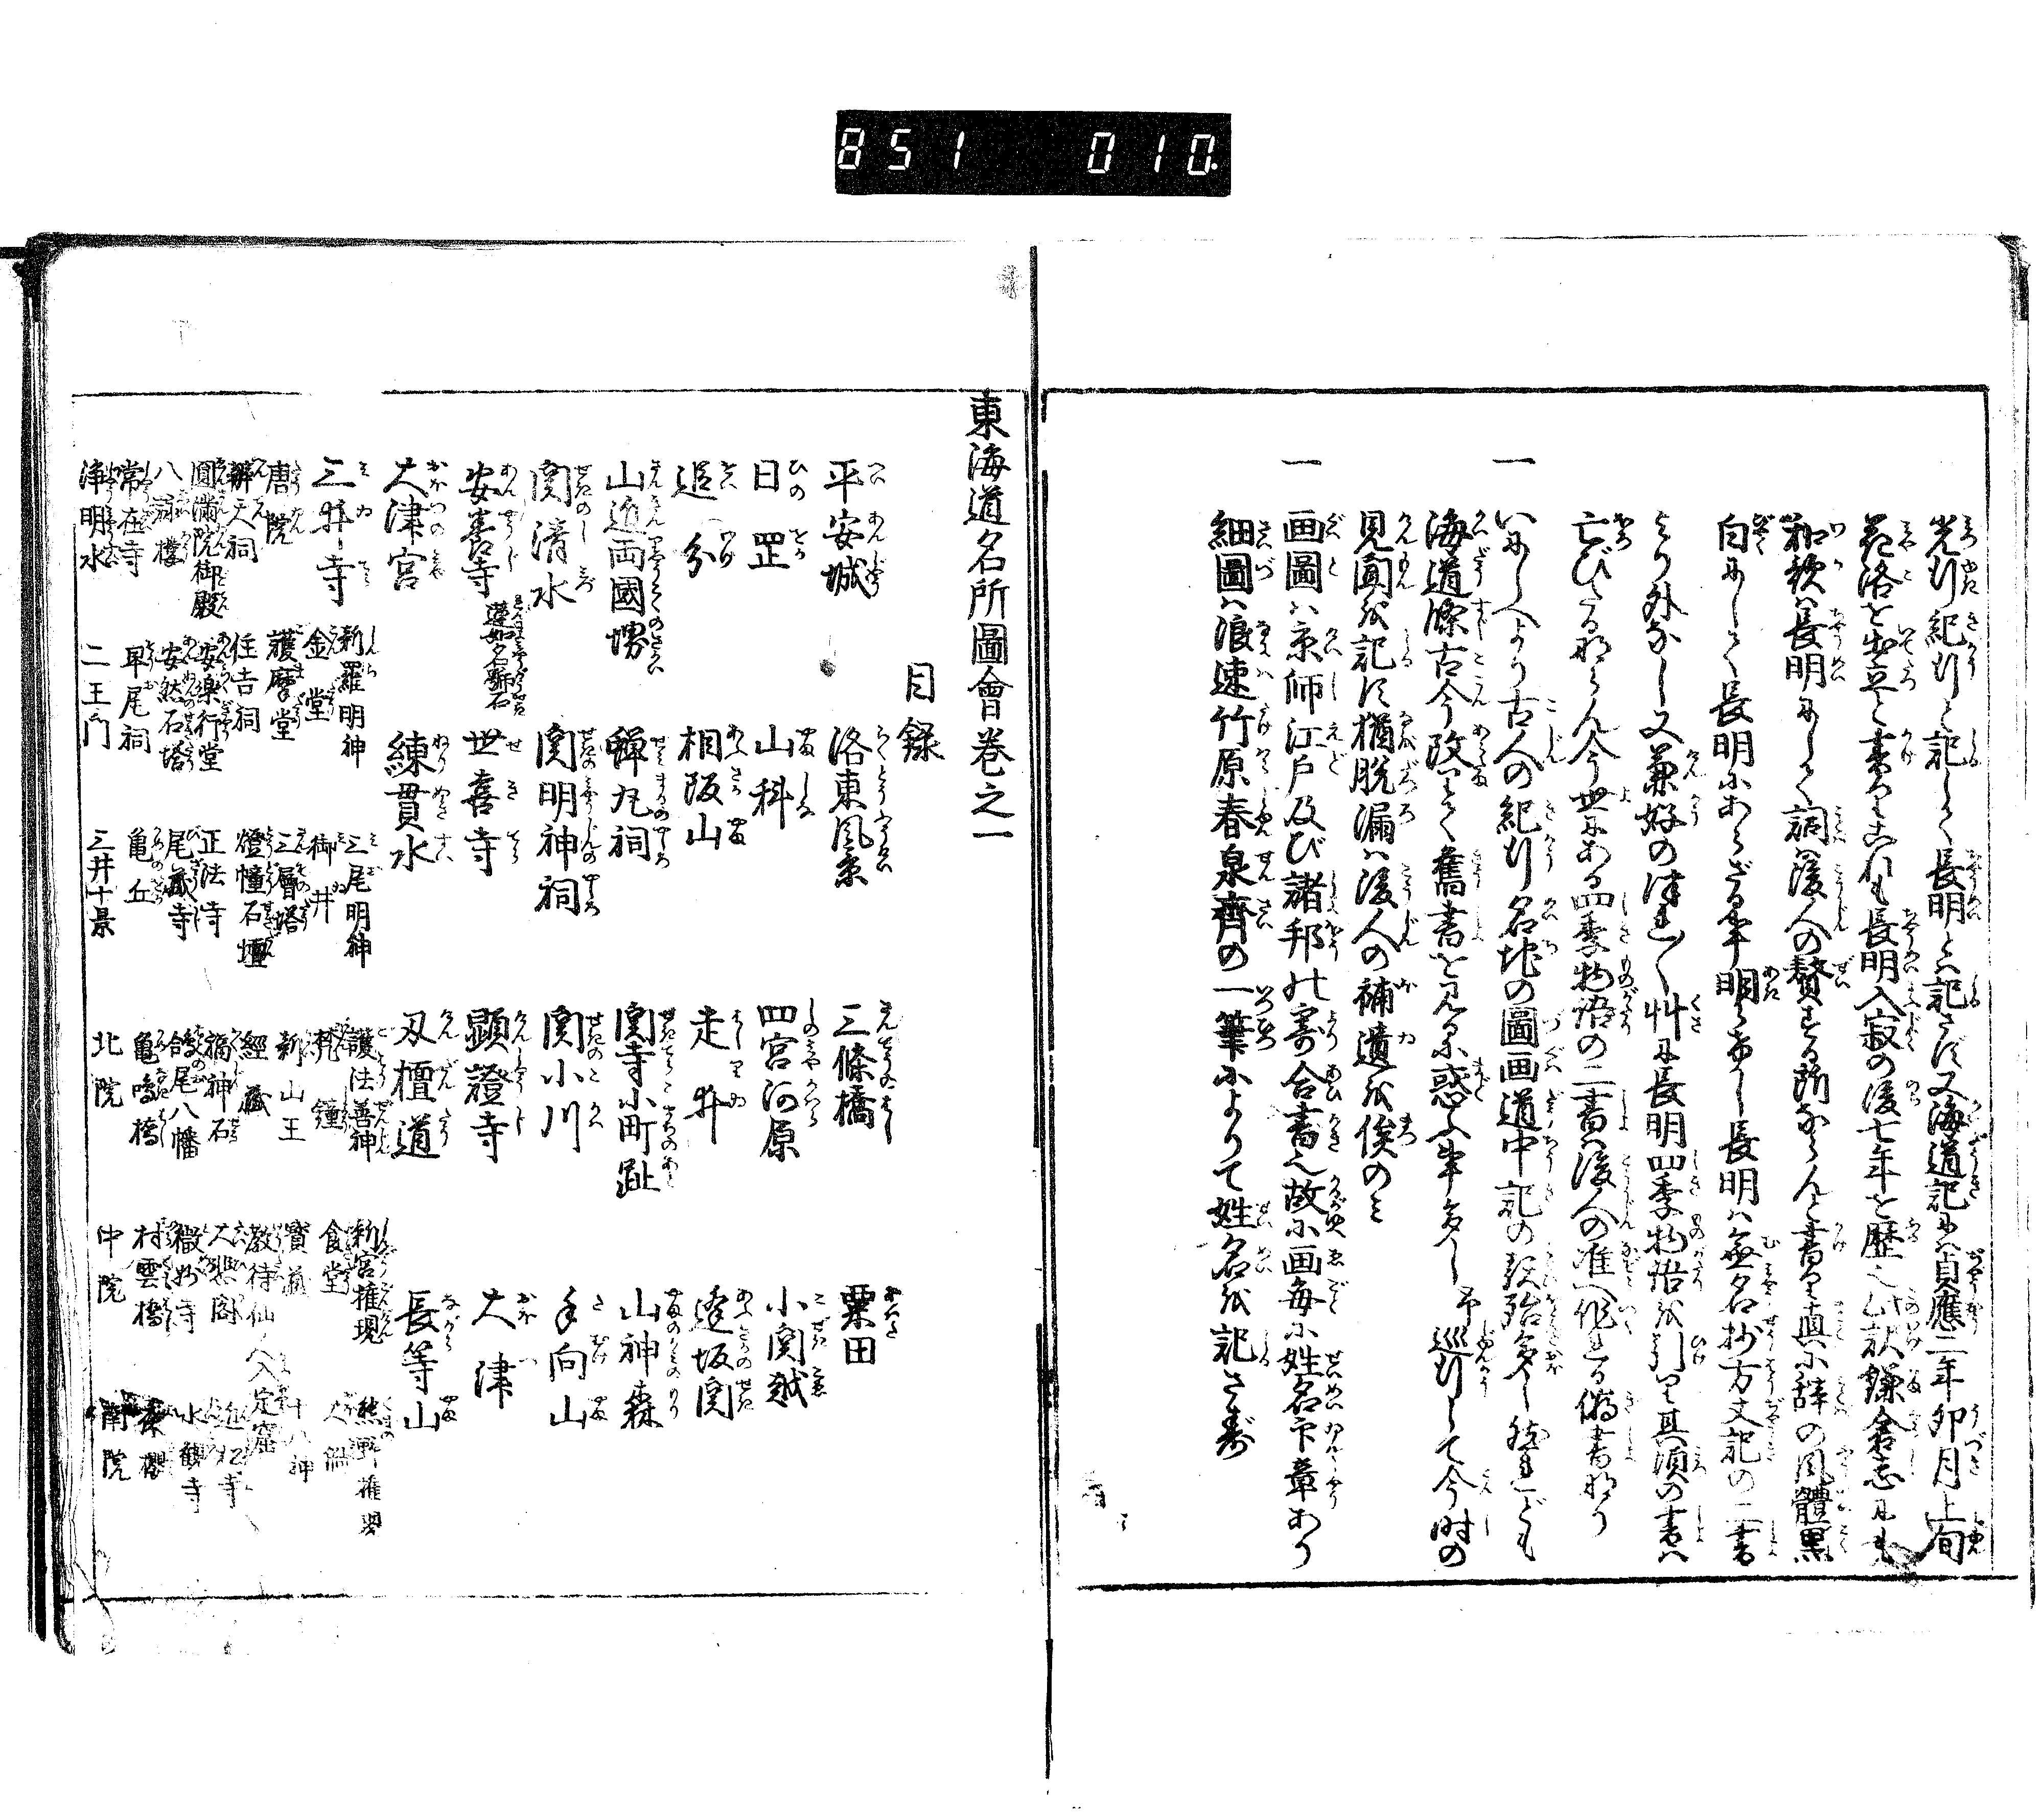 851 010
光行紀行と記して長明とハ記さず又海道記にハ貞應二年卯月上旬
花洛を出立と書り是れも長明入寂の後七年を歴たり故鎌倉志にも
和歌は長明にして詞ハ後人の贅する所ならんと書り真に辞の風體黒
白にして長明にあらざる事明らけし長明ハ無名抄方丈記の二書
より外なし又兼好の徒然草に長明四季物語を引り其頃の書ハ
亡びたるならん今世にある四季物語の二書ハ後人の准へ作れる偽書なり
一 いにしへより古人の紀行名地の圖画道中記の類殆多し然れども
海道條古今改りて舊書を見るに惑ふ事多し予巡行して今時の
見聞を記す猶脱漏ハ後人の補遺を俟のミ
一 画圖ハ京師江戸及び諸邦の寄合書之故に画毎に姓名印章あり
細圖ハ浪速竹原春泉齊の一筆によりて姓名を記さず
東海道名所圖會巻之一
目録
平安城 洛東風景 三條橋 粟田
日罡 山科 四宮河原 小関越
追分 相阪山 走井 逢坂関
山近両國堺 蝉丸祠 関寺小町趾 山神森
関清水 関明神祠 関小川 手向山
安養寺 蓮如名號石 世喜寺 顕證寺 大津
大津宮 練貫水 刃檀道 長等山
三井寺 新羅明神 三尾明神 護法善神 新宮権現 熊野権現
金堂 御井 梵鐘 食堂
唐院 護摩堂 三層塔 新山王 寶蔵 十八神
辨天祠 住吉祠 燈幢石壇 經蔵 教待仙人入定窟
圓満院御殿 安樂行堂 正法寺 福神石 大悲閣 近松寺
八詠樓 安然石塔 尾蔵寺 鴿尾八幡 水観寺
常在寺 早尾祠 亀丘 亀鳴橋 村雲橋
浄明水 二王門 三井十景 北院 中院 南院